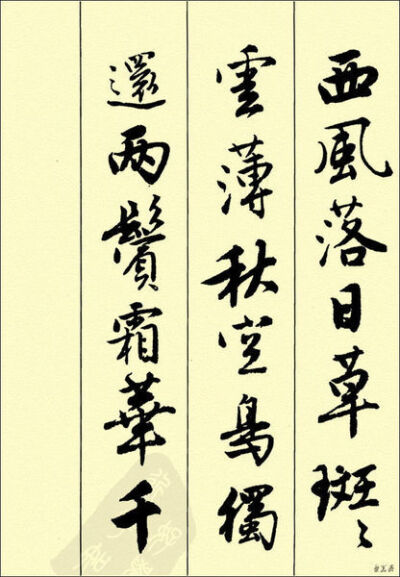 西風落日草斑〻
雲薄秋空鳥獨
還两鬢霜華千